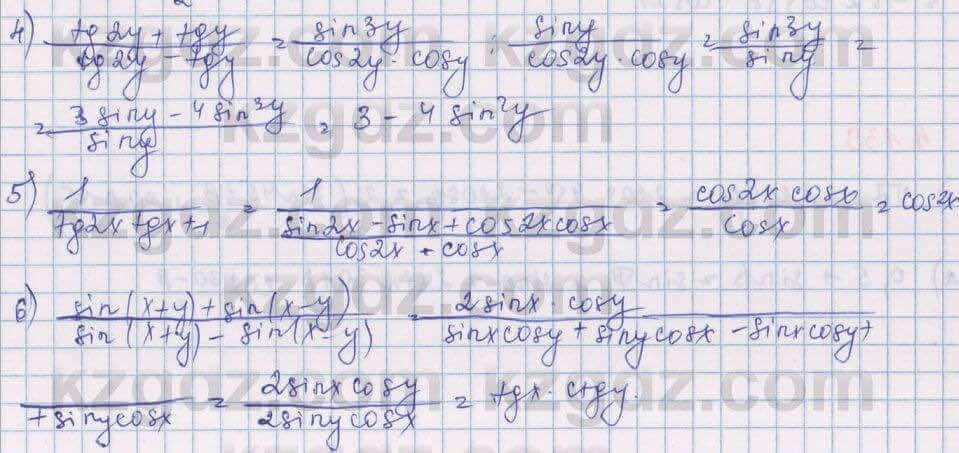 4) (tg2y + tgy)/(tg2y - tgy) = sin3y/(cos2y · cosy) : siny/(cos2y · cosy) = sin3y/siny =
= (3 siny - 4 sin³y)/siny = 3 - 4 sin²y
5) 1/(tg2x tgx + 1) = 1/((sin2x - sinx + cos2x cosx)/(cos2x + cosx)) = (cos2x cosx)/cosx = cos2x
6) (sin(x+y) + sin(x-y))/(sin(x+y) - sin(x-y)) = (2sinx · cosy)/(sinxcosy + sinycosx - sinxcosy +
+ sinycosx) = (2sinxcosy)/(2sinycosx) = tgx · ctgy.
kzgdz.com
kzgdz.com
kzgdz.com
kzgdz.com
kzgdz.com